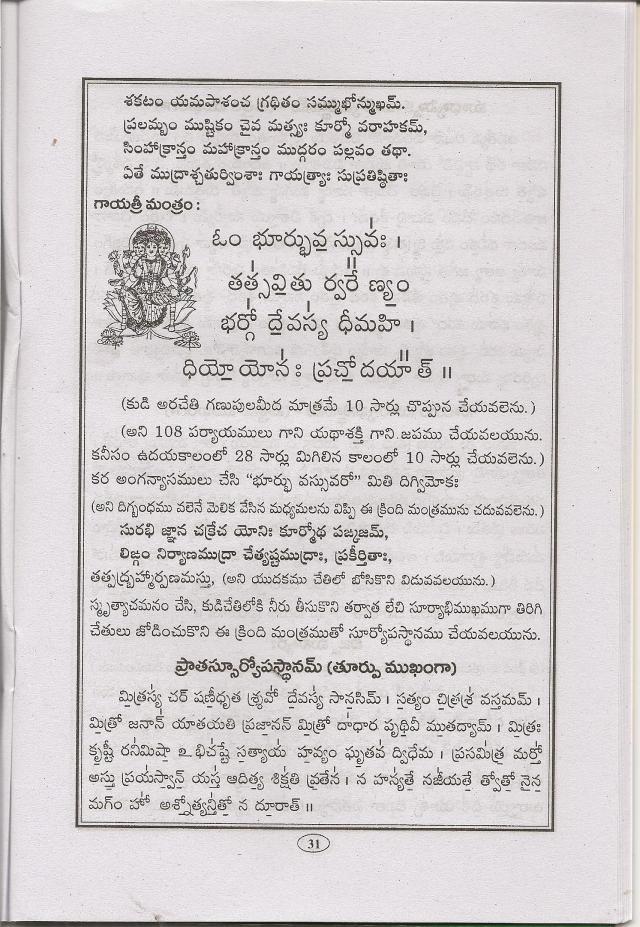 శకటం యమపాశంచ గ్రథితం సమ్ముఖోన్ముఖమ్.
ప్రలమ్బం ముష్టికం చైవ మత్స్యః కూర్మో వరాహకమ్,
సింహాక్రాన్తం మహాక్రాన్తం ముద్గరం పల్లవం తథా.
ఏతే ముద్రాశ్చతుర్వింశాః గాయత్ర్యాః సుప్రతిష్ఠితాః
గాయత్రీ మంత్రం :
ఓం భూర్భువ॒ స్సువః॑ ।
తత్స॑వి॒తు ర్వరే᳚ ణ్యం॒
భర్గో॑ దే॒వస్య॑ ధీమహి ।
ధియో॒ యోనః॑ ప్రచో॒దయా᳚త్ ॥
(కుడి అరచేతి గణుపులమీద మాత్రమే 10 సార్లు చొప్పున చేయవలెను.)
(అని 108 పర్యాయములు గాని యథాశక్తి గాని జపము చేయవలయును.
కనీసం ఉదయకాలంలో 28 సార్లు మిగిలిన కాలంలో 10 సార్లు చేయవలెను.)
కర అంగన్యాసములు చేసి “భూర్భు వస్సువరో” మితి దిగ్విమోకః
(అని దిగ్బంధము వలెనే మెలిక వేసిన మధ్యమలను విప్పి ఈ క్రింది మంత్రమును చదువవలెను.)
సురభి జ్ఞాన చక్రేచ యోనిః కూర్మోథ పఙ్కజమ్,
లిఙ్గం నిర్యాణముద్రా చేత్యష్టముద్రాః, ప్రకీర్తితాః,
తత్పద్బ్రహ్మార్పణమస్తు, (అని యుదకము చేతిలో బోసికొని విడువవలయును.)
స్మృత్యాచమనం చేసి, కుడిచేతిలోకి నీరు తీసుకొని తర్వాత లేచి సూర్యాభిముఖముగా తిరిగి
చేతులు జోడించుకొని ఈ క్రింది మంత్రముతో సూర్యోపస్థానము చేయవలయును.
ప్రాతస్సూర్యోపస్థానమ్ (తూర్పు ముఖంగా)
మి॒త్రస్య॑ చర్ షణీధృత శ్రవో॑ దే॒వస్య॑ సాన॒సిమ్ । స॒త్యం చి॒త్రశ్ర॑ వస్తమమ్ ।
మి॒త్రో జనాన్॑ యాతయతి ప్రజా॒నన్ మి॒త్రో దా॑ధార పృథి॒వీ ము॒తద్యామ్ । మి॒త్రః
కృ॒ష్టీ రని॑మిషా॒ ఽభిచ॑ష్టే స॒త్యాయ॑ హ॒వ్యం ఘృ॒తవ॑ ద్విధేమ । ప్రసమి॑త్ర॒ మర్తో॑
అస్తు॒ ప్రయ॑స్వా॒న్ యస్త॑ ఆదిత్య॒ శిక్ష॑తి వ్ర॒తేన॑ । న హ॑న్యతే॒ నజీ॑యతే॒ త్వోతో॒ నైన॒
మగ్ం హో॑ అశ్నో॒త్యన్తి॑తో॒ న దూ॒రాత్ ॥
31